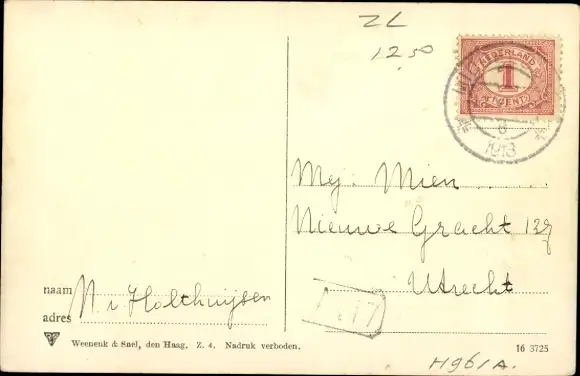 ZL
12,50
NEDERLAND
1
CENT
1913
Mej. Mien
Nieuwe Gracht
Utrecht
naam N. v. Holthuijsen
adres
Weenenk & Snel, den Haag. Z. 4. Nadruk verboden.
16 3725
H961A.